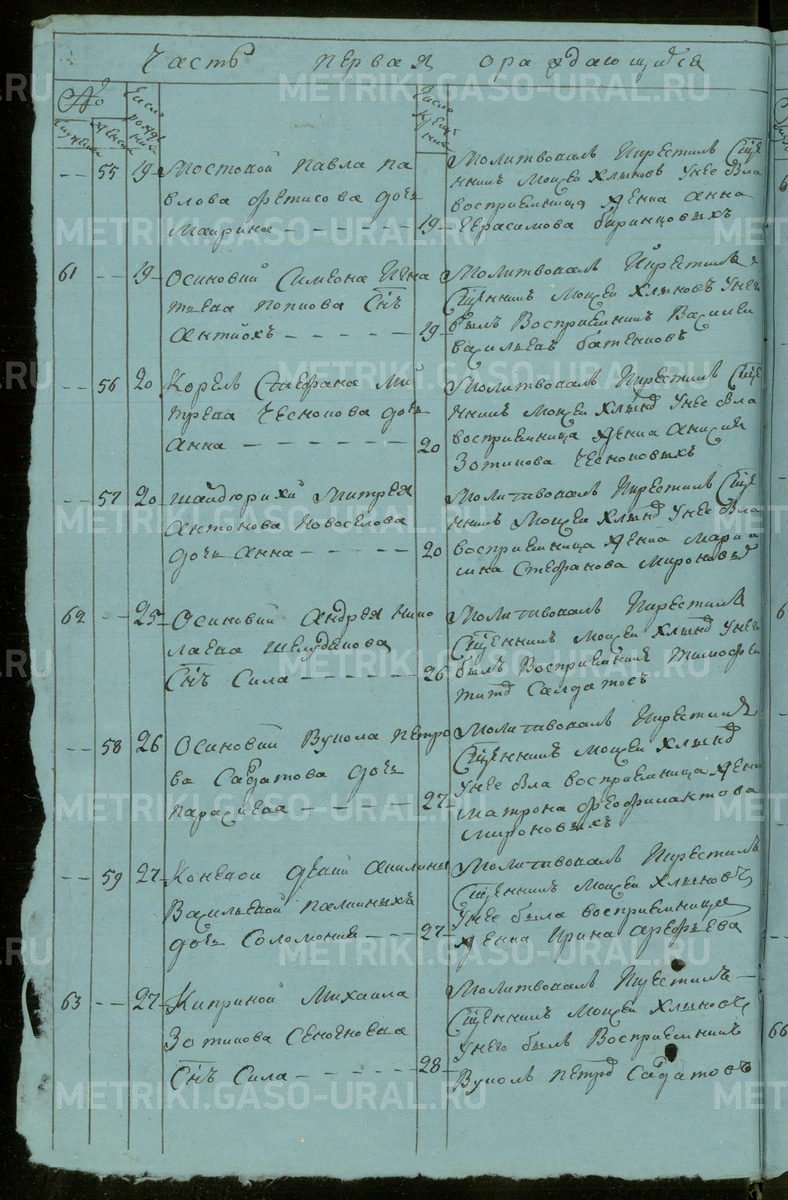 Часть первая о раждающихся
№
Число рожде ния
Число креще ния
мужска женска
-- 55 19 Мостовой Павла Па
влова Фетисова дочь
Маврина
Молитвовалъ и крестилъ Сщ҃е
нникъ Моисей Хлыновъ у нее бла
восприемница девка Анна
19 Герасимова Баринцовыхъ
61 -- 19 Осиновой Симеона Игна
тьева Попкова Сн҃ъ
Антиохъ
Молитвовалъ и крестилъ
Сщ҃енникъ Моисей Хлыновъ у него
19 былъ восприемникъ Василей
Васильевъ Батенковъ
-- 56 20 Корелы Стефана Ми
трева Чеснокова дочь
Анна
Молитвовалъ и крестилъ Сщ҃е
нникъ Моисей Хлынд у нее бла
восприемница девка Анисия
20 Зотикова Чесноковыхъ
-- 57 20 Шайдюрихи Митрея
Антонова Новоселова
дочь Анна
Молитвовалъ и крестилъ Сщ҃е
нникъ Моисей Хлынд у нее бла
20 восприемница девка
Стефанова Мироновы
62 -- 25 Осиновки Андрея Нико
лаева Шелудкова
Сн҃ъ Сила
Молитвовалъ и крестилъ
Сщ҃енникъ Моисей Хлынд у него
26 былъ восприемникъ Тимофеи
Титд Салдатовъ
-- 58 26 Осиновки Вукола Петро
ва Садатова дочь
Параскева
Молитвовалъ и крестилъ
Сщ҃енникъ Моисей Хлынд
у нее бла восприемница девка
27 Матрона Феофилактова
Мироновыхъ
-- 59 27 Коневой девки Акилины
Васильевой Палкиныхъ
дочь Соломония
Молитвовалъ и крестилъ
Сщ҃енникъ Моисей Хлыновъ
у нее была восприемница
27 девка Ирина Арефьева
63 -- 27 Киприной Михаила
Зотикова Сеногноева
Сн҃ъ Сила
Молитвовалъ и крестилъ
Сщ҃енникъ Моисей Хлыновъ
у него былъ восприемникъ
28 Вуколъ Петрд Садатовъ
METRIKI.GASO-URAL.RU